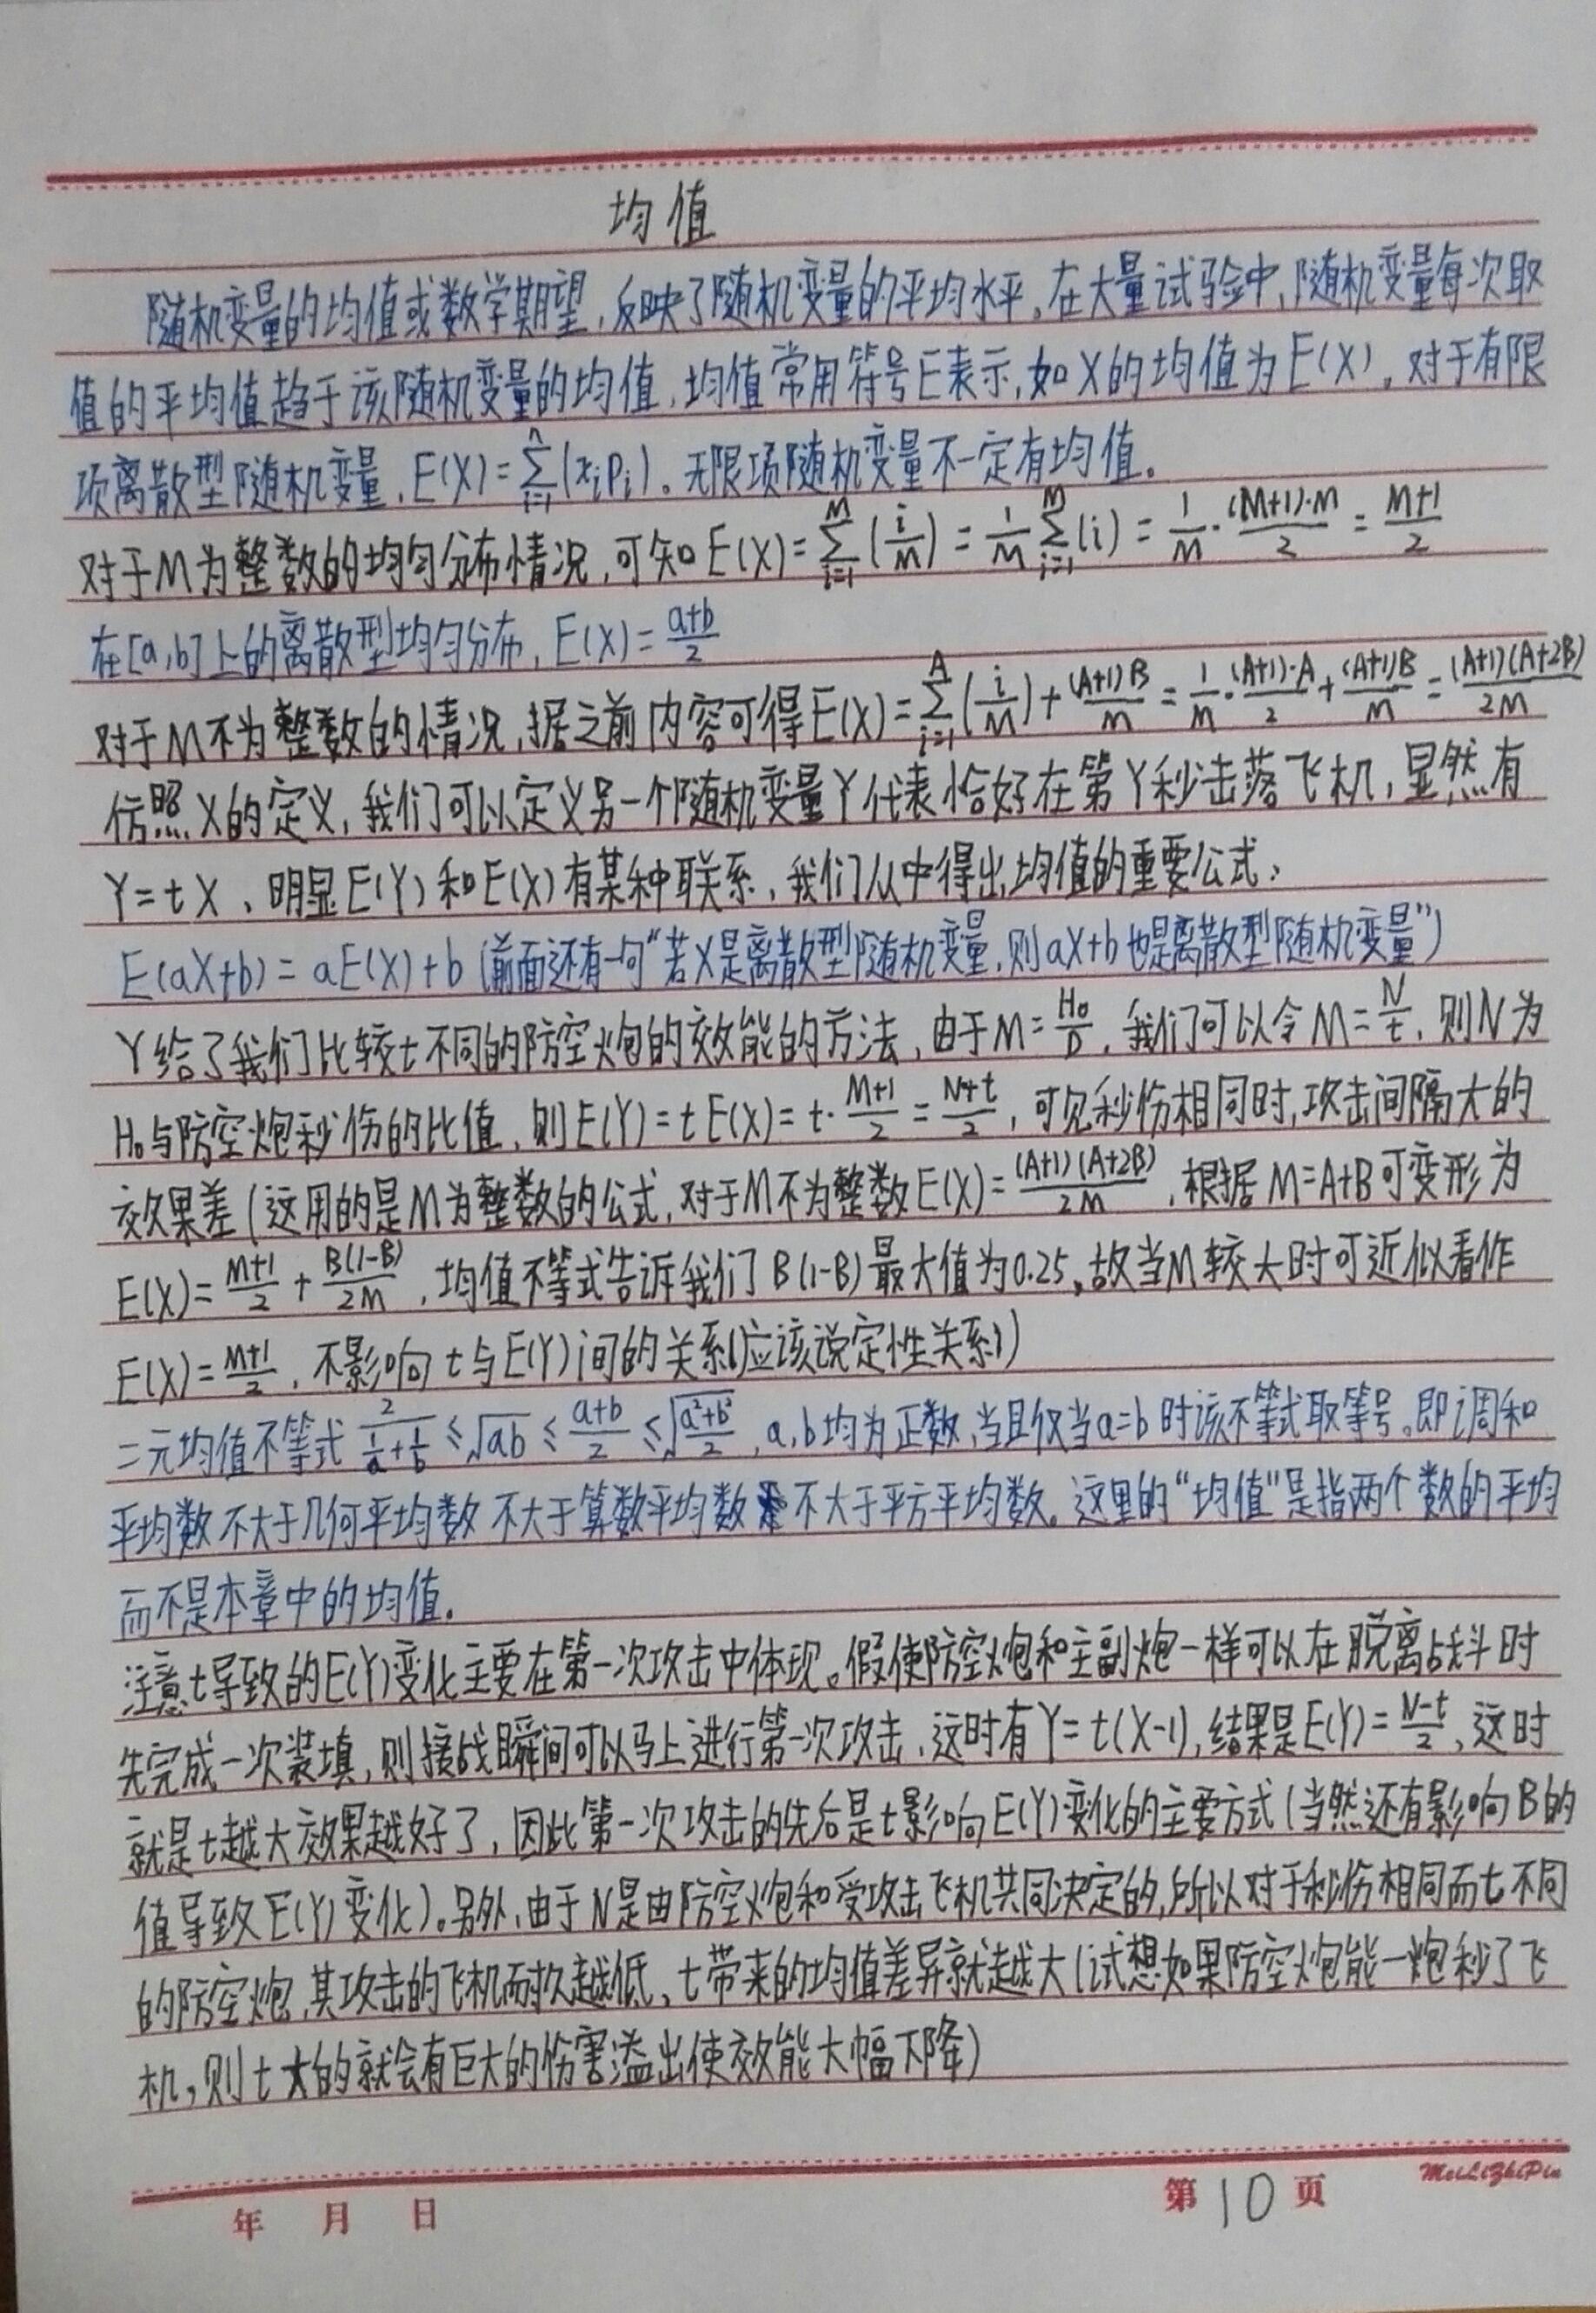 均值
随机变量的均值或数学期望,反映了随机变量的平均水平。在大量试验中,随机变量每次取
值的平均值趋于该随机变量的均值,均值常用符号E表示,如X的均值为E(X)。对于有限
项离散型随机变量,E(X)=∑_{i=1}^{n}(x_i p_i)。无限项随机变量不一定有均值。
对于M为整数的均匀分布情况,可知E(X)=∑_{i=1}^{M}(i/M)=1/M ∑_{i=1}^{M}(i)=1/M·(M+1)·M/2=(M+1)/2
在[a,b]上的离散型均匀分布,E(X)=(a+b)/2
对于M不为整数的情况,据之前内容可得E(X)=∑_{i=1}^{A}(i/M)+(A+1)B/M=1/M·(A+1)·A/2+(A+1)B/M=(A+1)(A+2B)/2M
仿照X的定义,我们可以定义另一个随机变量Y代表恰好在第Y秒击落飞机,显然有
Y=tX、明显E(Y)和E(X)有某种联系,我们从中得出均值的重要公式:
E(aX+b)=aE(X)+b(前面还有一句“若X是离散型随机变量,则aX+b也是离散型随机变量”)
Y给了我们比较t不同的防空炮的效能的方法,由于M=H₀/D,我们可以令M=N/t,则N为
H₀与防空炮秒伤的比值,则E(Y)=tE(X)=t·(M+1)/2=(N+t)/2,可见秒伤相同时,攻击间隔大的
效果差(这用的是M为整数的公式,对于M不为整数E(X)=(A+1)(A+2B)/2M,根据M=A+B可变形为
E(X)=(M+1)/2+B(1-B)/2M,均值不等式告诉我们B(1-B)最大值为0.25,故当M较大时可近似看作
E(X)=(M+1)/2,不影响t与E(Y)间的关系(应该说定性关系))
二元均值不等式 2/(1/a+1/b)≤√ab≤(a+b)/2≤√((a²+b²)/2),a,b均为正数,当且仅当a=b时该不等式取等号。即调和
平均数不大于几何平均数不大于算数平均数不大于平方平均数。这里的“均值”是指两个数的平均
而不是本章中的均值。
注意t导致的E(Y)变化主要在第一次攻击中体现。假使防空炮和主副炮一样可以在脱离战斗时
先完成一次装填,则接战瞬间可以马上进行第一次攻击,这时有Y=t(X-1),结果是E(Y)=(N-t)/2,这时
就是t越大效果越好了,因此第一次攻击的先后是t影响E(Y)变化的主要方式(当然还有影响B的
值导致E(Y)变化)。另外,由于N是由防空炮和受攻击飞机共同决定的,所以对于秒伤相同而t不同
的防空炮,其攻击的飞机耐久越低、t带来的均值差异就越大(试想如果防空炮能一炮秒了飞
机,则t大的就会有巨大的伤害溢出使效能大幅下降)
年 月 日 第10页 MeiLiZhiPin